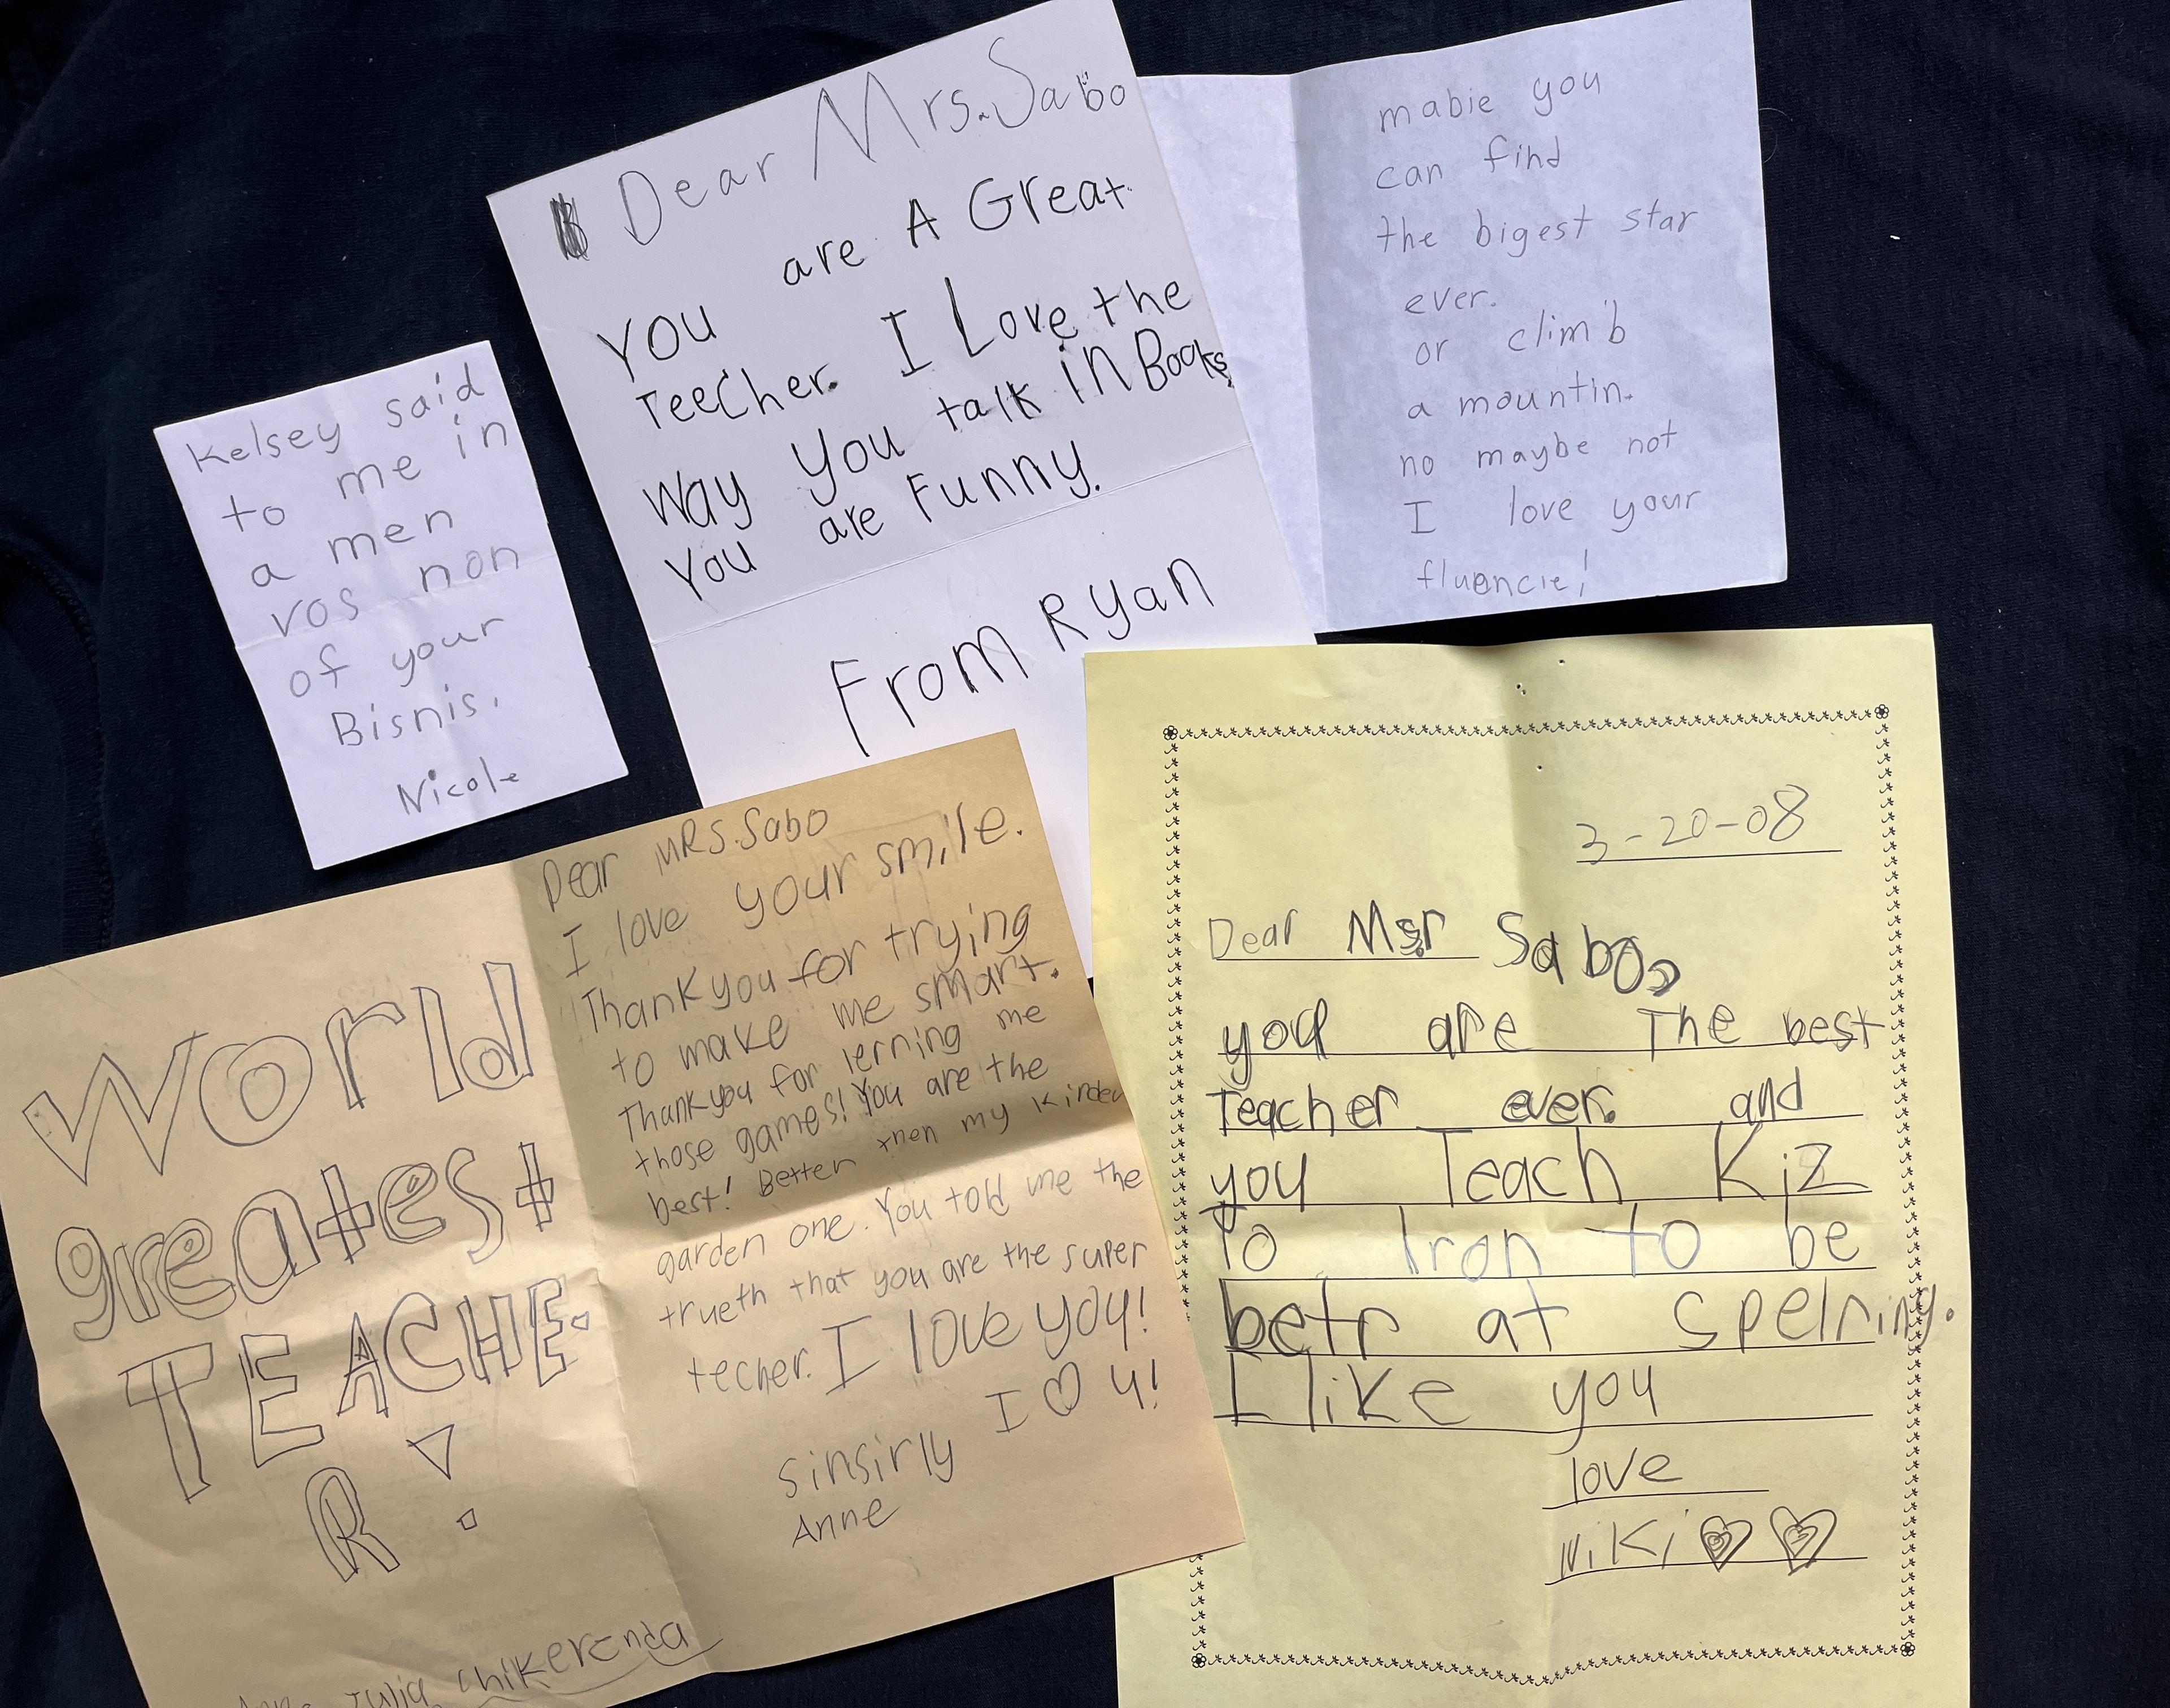 Dear Mrs. Sabo
You are A Great
Teecher. I Love the
Way You talk in Books
You are Funny.
From Ryan
mabie you
can find
the bigest star
ever.
or climb
a mountin.
no maybe not
I love your
fluencie!
Kelsey said
to me in
a men
vos non
of your
Bisnis.
Nicole
World
greatest
TEACHE-
R!
Julia Chikerenda
Dear MRS. Sabo
I love your smile.
Thank you for trying
to make me smart.
Thank you for lerning me
those games! You are the
best! Better then my kinder
garden one. You told me the
trueth that you are the super
techer. I love you!
I ♡ u!
sinsirly
Anne
3-20-08
Dear Msr Sabo,
you are The best
Teacher ever. and
you Teach Kiz
To lron to be
betr at spelring.
I like you
love
Niki ♡ ♡